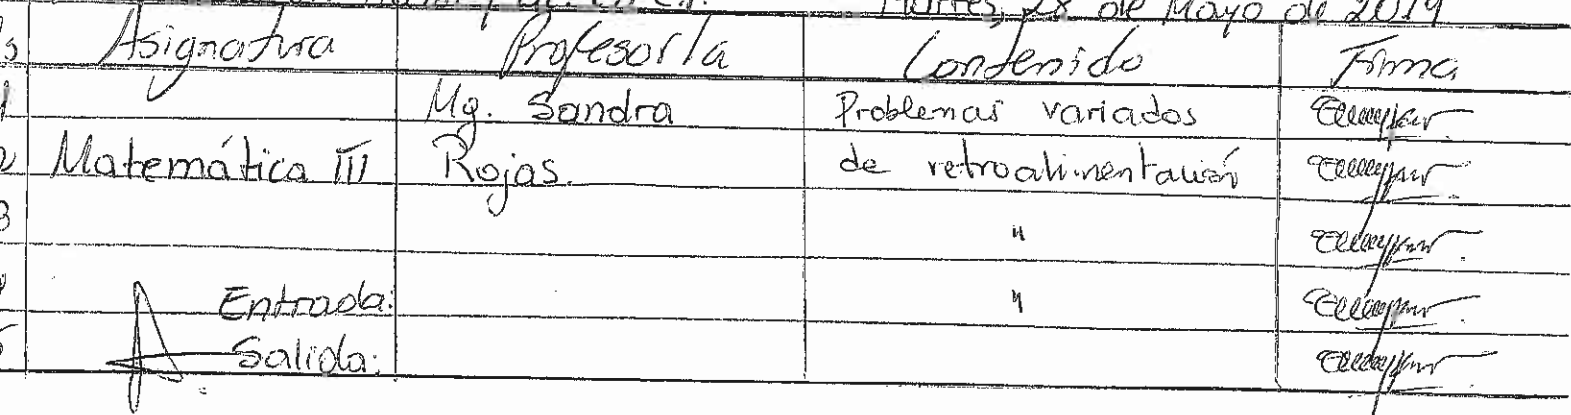 Martes, 28 de Mayo de 2019
Asignatura Profesor/a Contenido Firma
1 Mg. Sandra Problemas variados
2 Matemática III Rojas. de retroalimentación
3 "
4 Entrada: "
5 Salida: